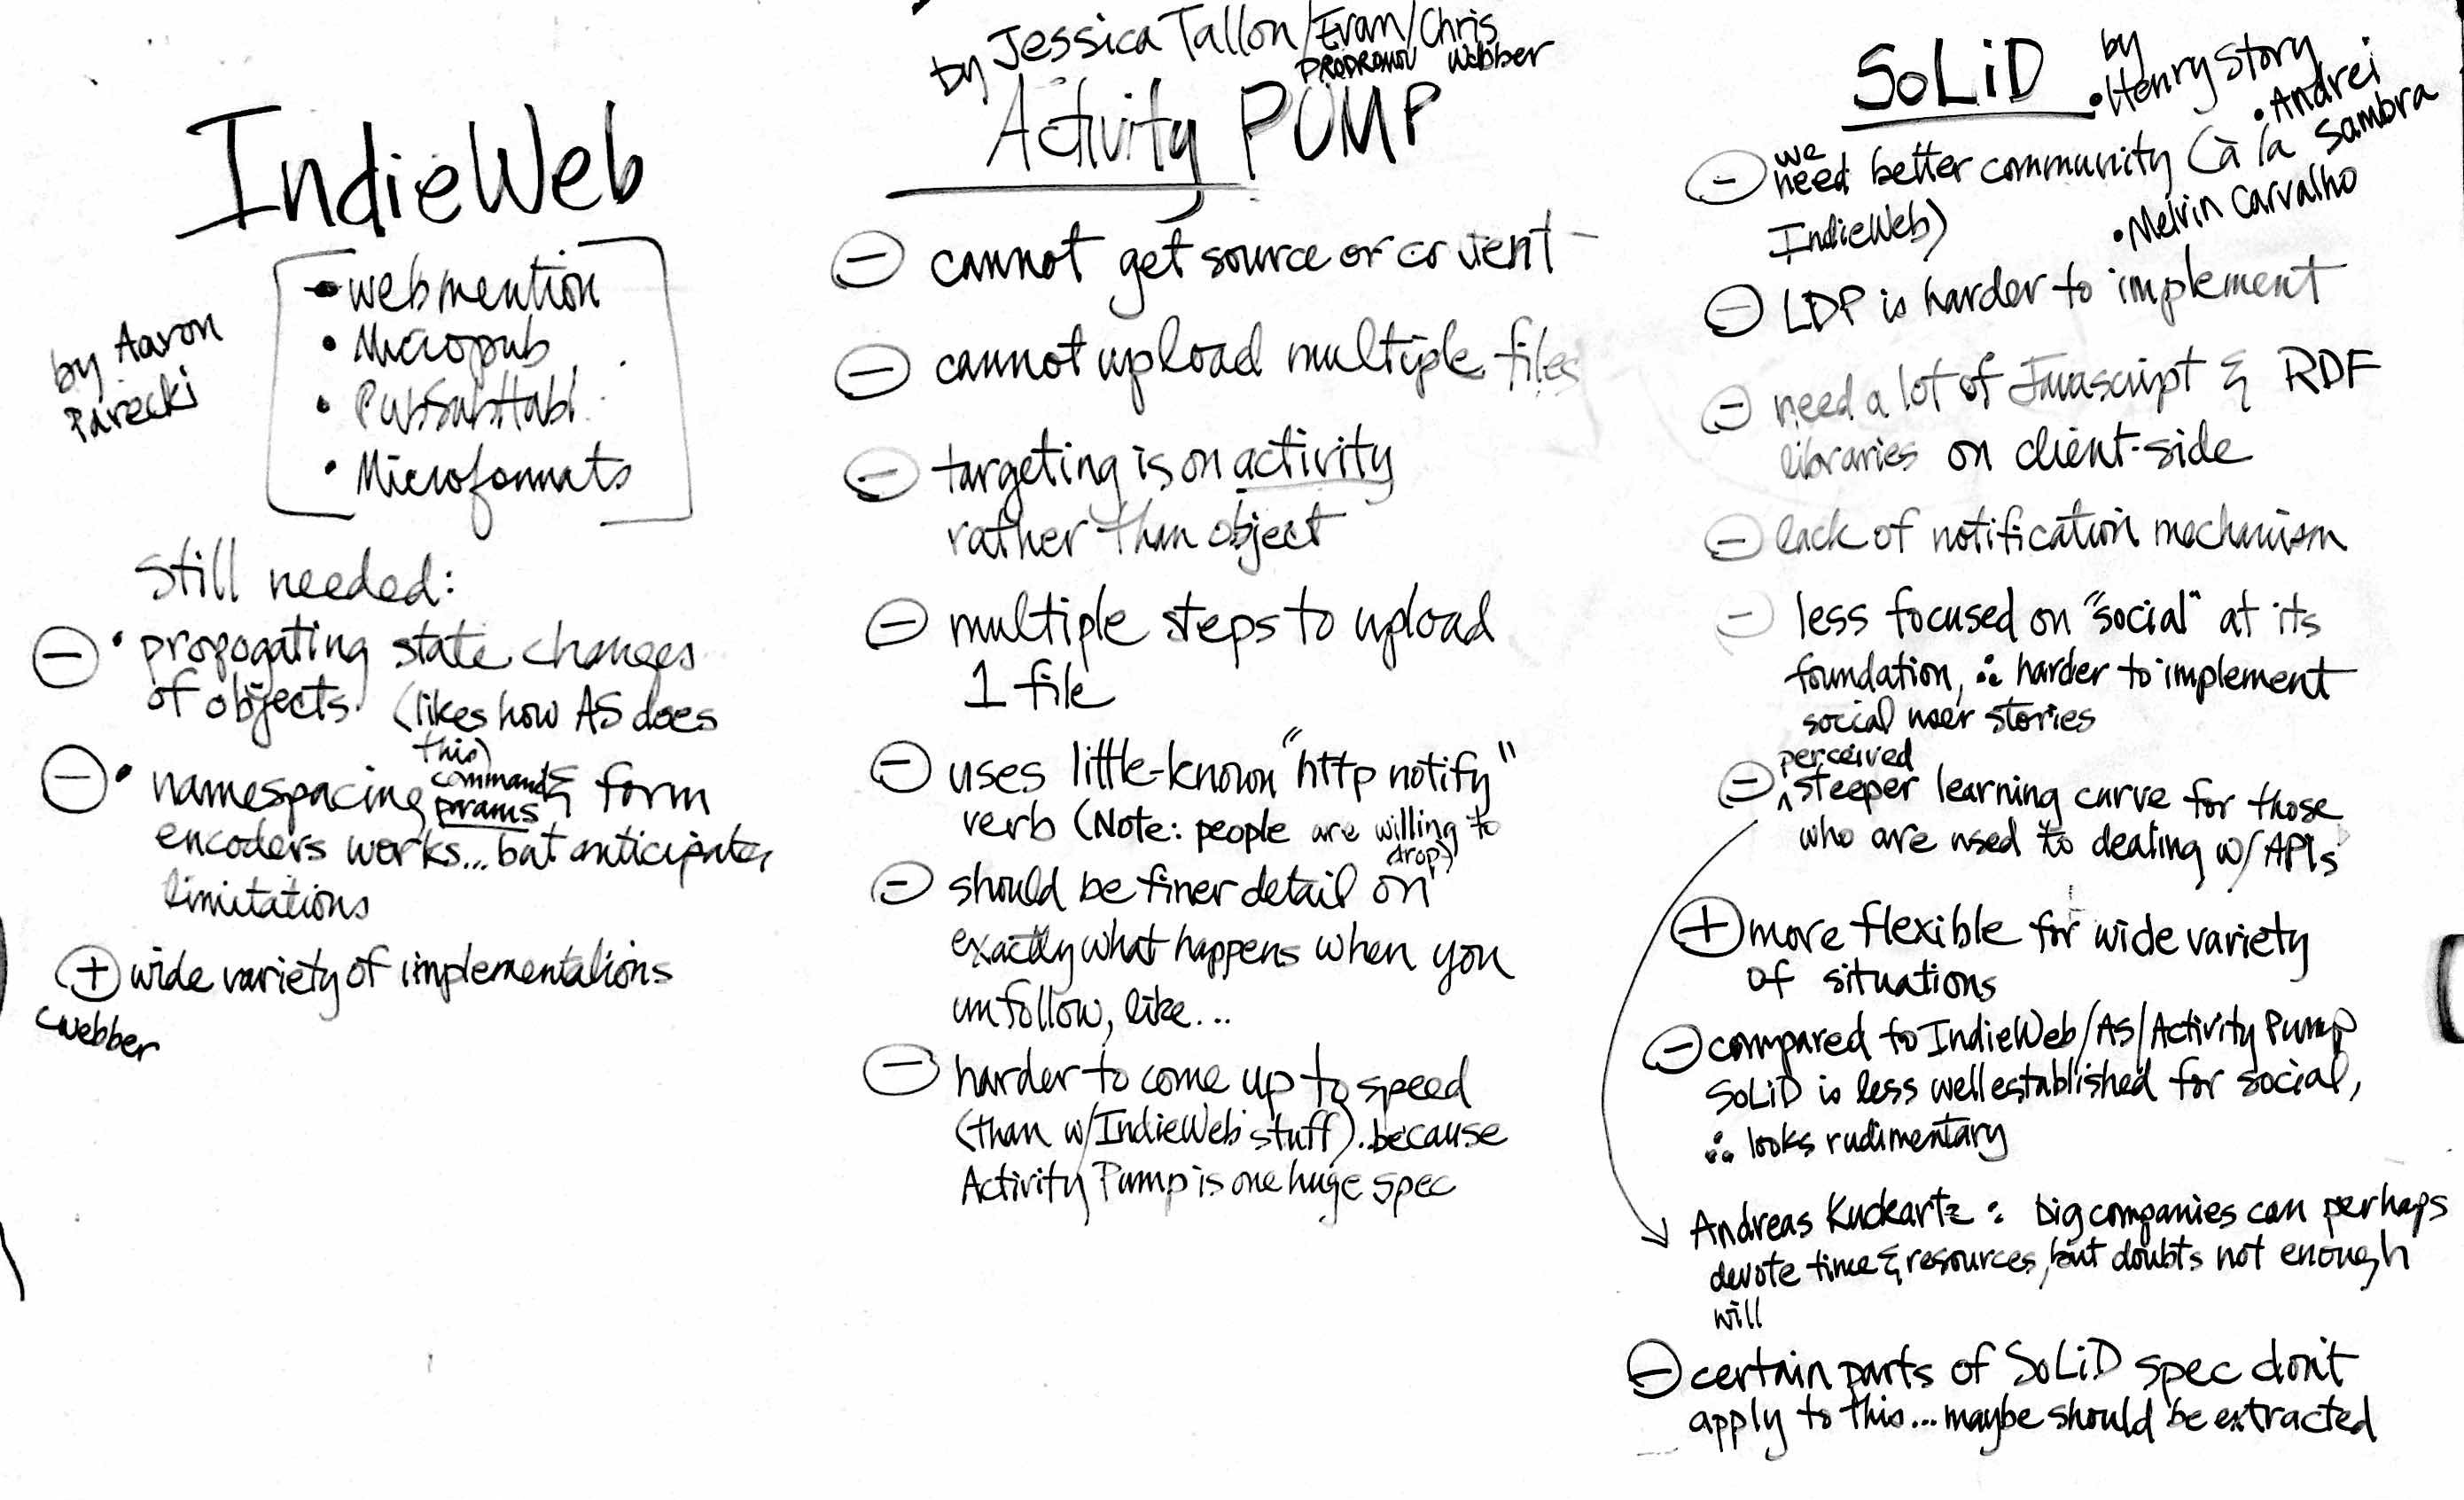 IndieWeb
by Aaron
Parecki
• webmention
• Micropub
• PubSubHub
• Microformats
Still needed:
⊖ • propogating state changes
of objects (likes how AS does
this)
⊖ • namespacing commands & form
params
encoders works... but anticipates
limitations
⊕ wide variety of implementations
cwebber
by Jessica Tallon/Evan/Chris
PRODROMOU Webber
Activity PUMP
⊖ cannot get source or content
⊖ cannot upload multiple files
⊖ targeting is on activity
rather than object
⊖ multiple steps to upload
1 file
⊖ uses little-known "http notify"
verb (Note: people are willing to
drop)
⊖ should be finer detail on
exactly what happens when you
unfollow, like...
⊖ harder to come up to speed
(than w/IndieWeb stuff). because
Activity Pump is one huge spec
SoLiD
by
• Henry Story
• Andrei
Sambra
• Melvin Carvalho
⊖ we
need better community (à la
IndieWeb)
⊖ LDP is harder to implement
⊖ need a lot of Javascript & RDF
libraries on client-side
⊖ lack of notification mechanism
⊖ less focused on "social" at its
foundation, ∴ harder to implement
social user stories
perceived
⊖ ^ steeper learning curve for those
who are used to dealing w/ APIs
⊕ more flexible for wide variety
of situations
⊖ compared to IndieWeb/AS/Activity Pump
SoLiD is less well established for social,
∴ looks rudimentary
Andreas Kuckartz: big companies can perhaps
devote time & resources, but doubts not enough
will
⊖ certain parts of SoLiD spec don't
apply to this... maybe should be extracted